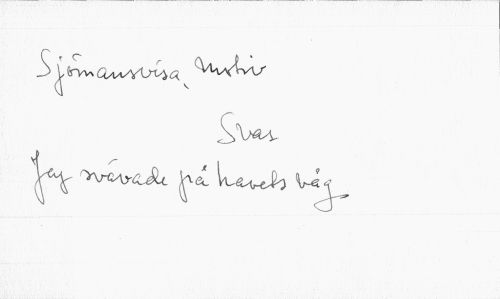 Sjömansvisa, Motiv
Svas
Jag svävade på havets våg